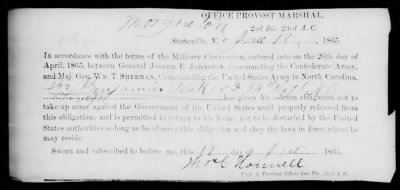 OFFICE PROVOST MARSHAL,
Morganton 2nd Div. 23d A. C.
Statesville, N. C., 1865.
In accordance with the terms of the Military Convention, entered into on the 26th day of
April, 1865, between General JOSEPH E. JOHNSTON, Commanding the Confederate Army,
and Maj. Gen. WM. T. SHERMAN, Commanding the United States Army in North Carolina,
Benjamin
has given his solemn obligation not to
take up arms against the Government of the United States until properly released from
this obligation; and is permitted to return to his home, not to be disturbed by the United
States authorities so long as he observe this obligation and obey the laws in force where he
may reside.
Sworn and subscribed to before me, this 12 day of 1865.
Capt. & Paroling Officer 2nd Div. 23rd A. C.